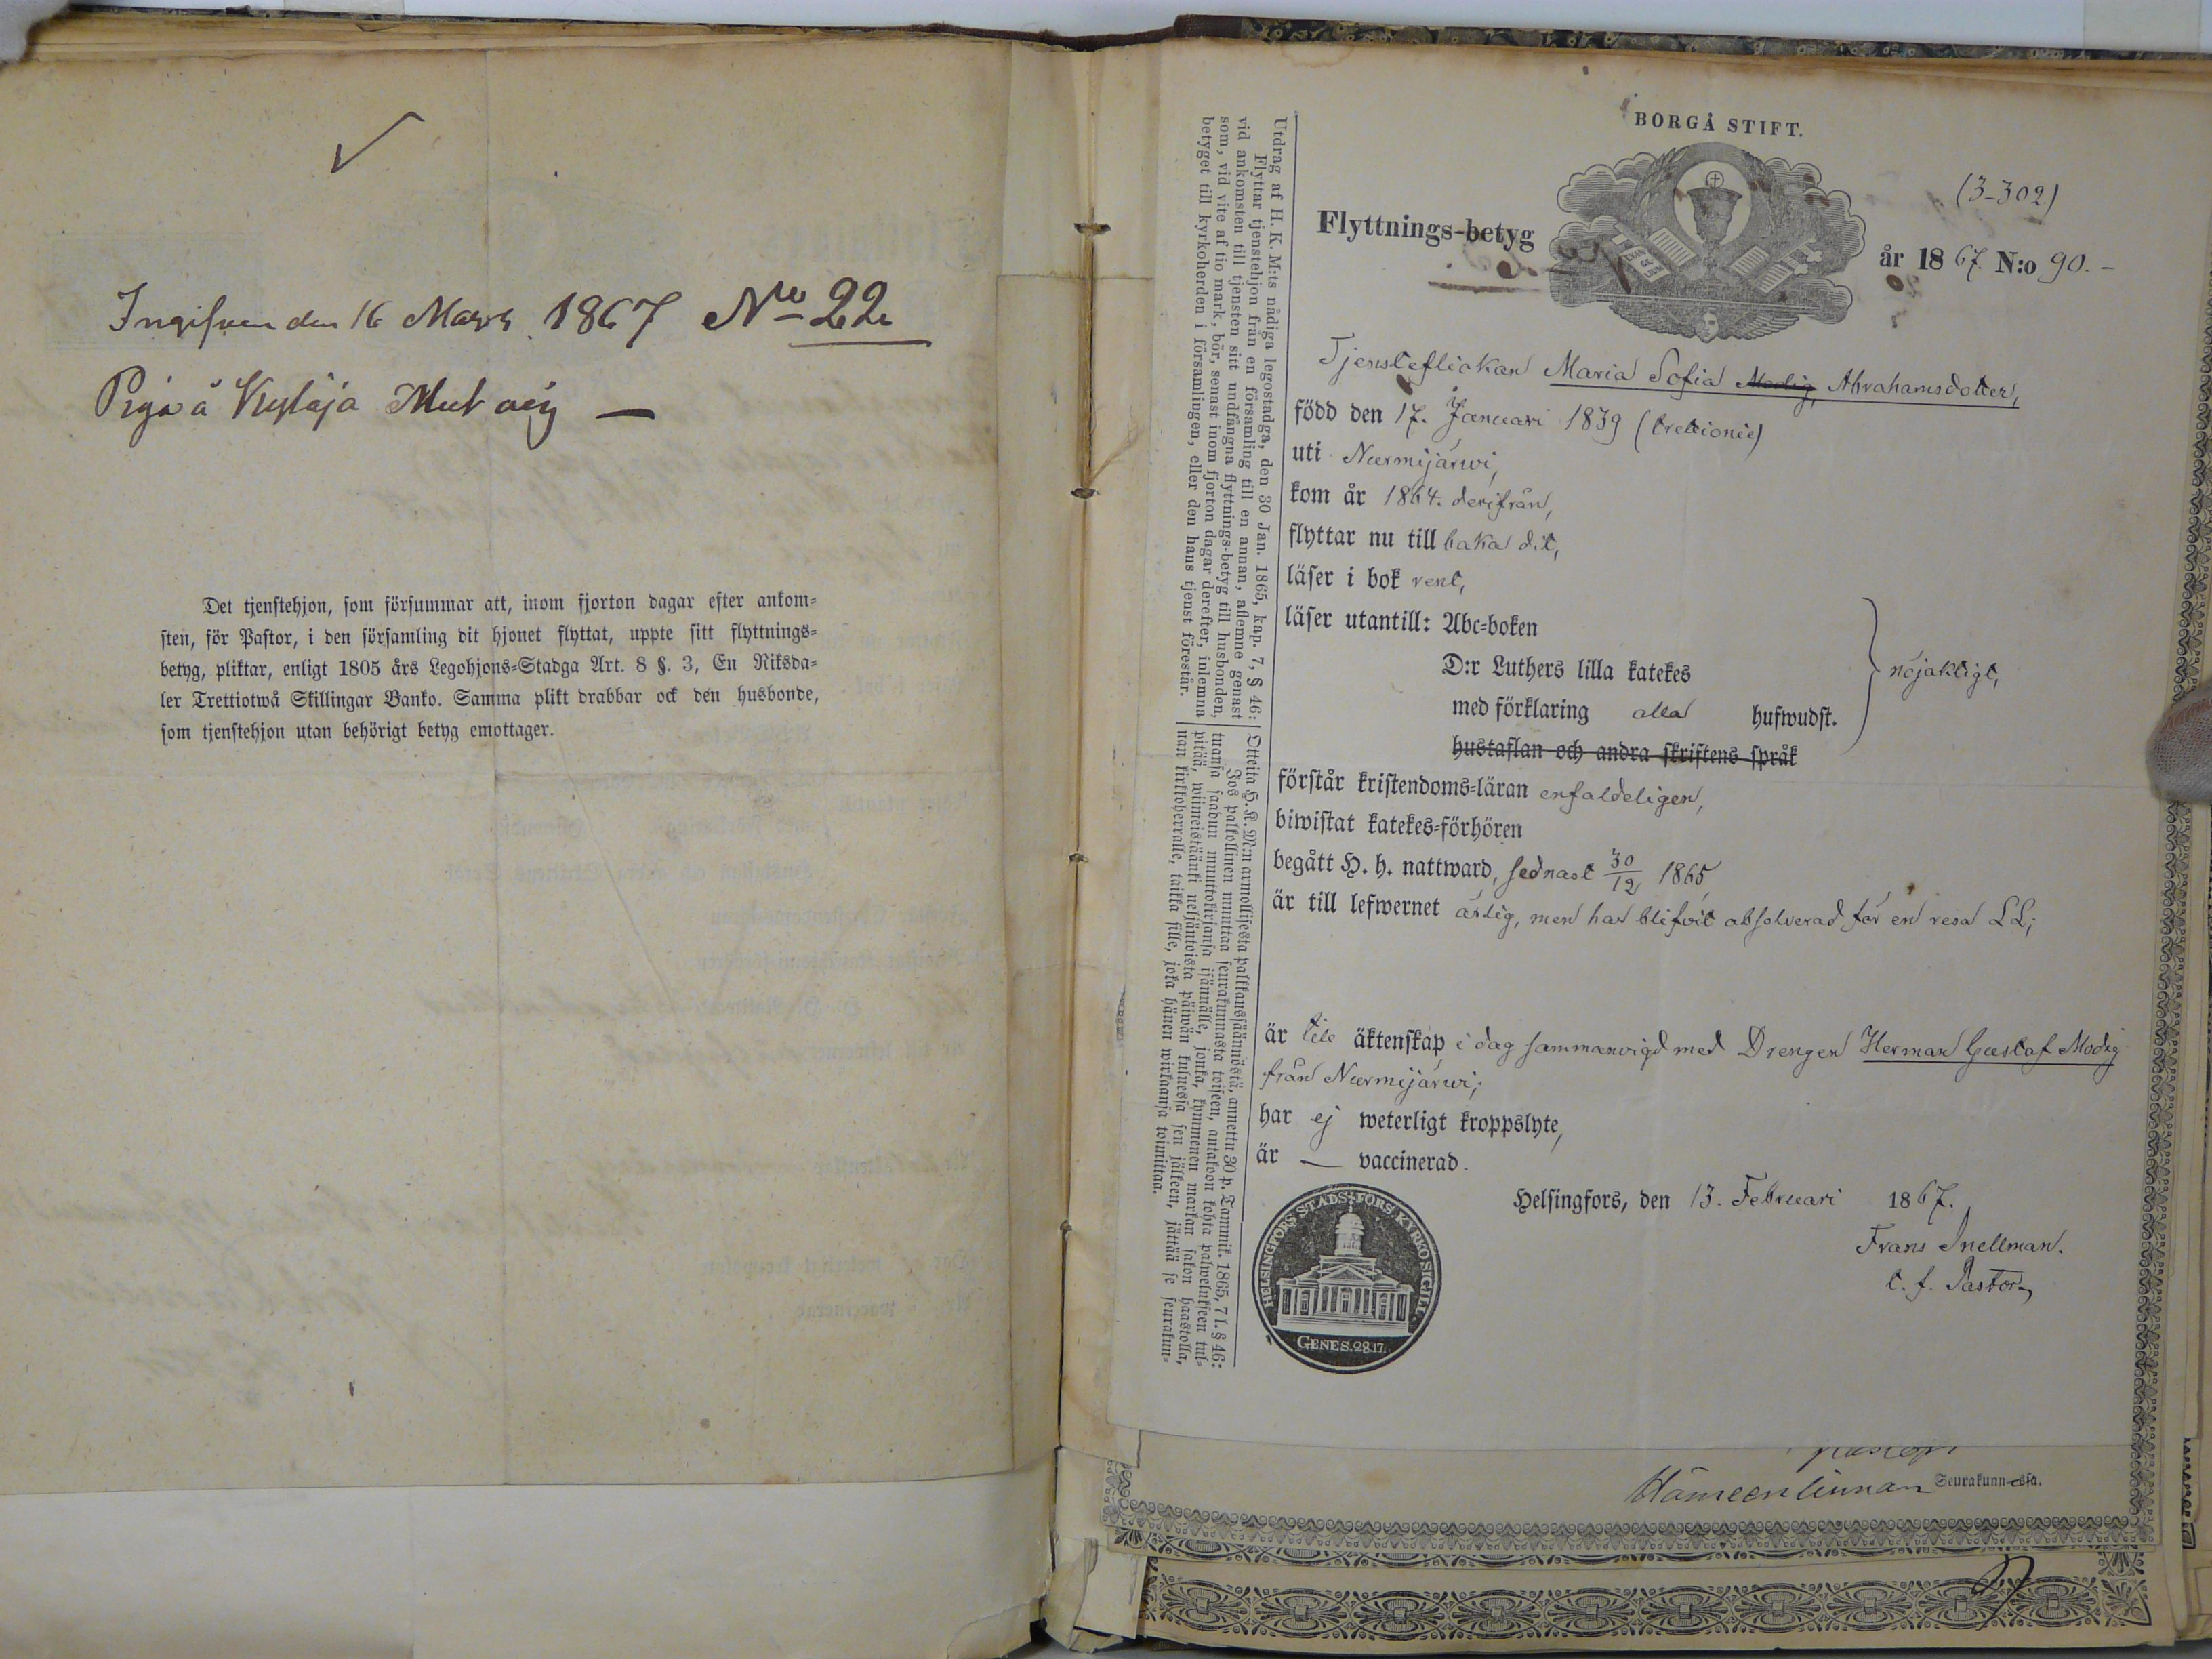 Ingifven den 16 Mars 1867 No 22
Piga å Kyläjä
Det tjenstehjon, som försummar att, inom fjorton dagar efter ankom-
sten, för Pastor, i den församling dit hjonet flyttat, uppte sitt flyttnings-
betyg, pliktar, enligt 1805 års Legohjons-Stadga Art. 8 §. 3, En Riksda-
ler Trettiotwå Skillingar Banko. Samma plikt drabbar ock den husbonde,
som tjenstehjon utan behörigt betyg emottager.
Utdrag af H. K. M:ts nådiga legostadga, den 30 Jan. 1865, kap. 7, § 46:
Flyttar tjenstehjon från en församling till en annan, aflemne genast
vid ankomsten till tjensten sitt undfångna flyttnings-betyg till husbonden,
som, vid vite af tio mark, bör, senast inom fjorton dagar derefter, inlemna
betyget till kyrkoherden i församlingen, eller den hans tjenst förestår.
Otteita H. K. M:n armollisesta palkkaussäännöstä, annettu 30 p. Tammik. 1865, 7 l. § 46:
Jos palkollinen muuttaa seurakunnasta toiseen, antakoon kohta palwelukseen tul-
tuansa saadun muuttokirjansa isännälle, jonka, kymmenen markan sakon haastolla,
pitää, wiimeistäänki neljäntoista päiwän kuluessa sen jälkeen, jättää se seurakun-
nan kirkkoherralle, taikka sille, joka hänen wirkaansa toimittaa.
BORGÅ STIFT.
(3-302)
EVAN
GE
LIUM
Flyttnings-betyg
år 1867. N:o 90. -
Tjensteflickan Maria Sofia Modig, Abrahamsdotter,
född den 17. Januari 1839 (trettionie)
uti Nurmijärwi,
kom år 1864. derifrån,
flyttar nu till baka dit,
läser i bok rent,
läser utantill: Abc-boken
D:r Luthers lilla katekes
nöjaktigt,
med förklaring alla hufwudst.
hustaflan och andra skriftens språk
förstår kristendoms-läran enfaldeligen,
biwistat katekes-förhören
begått H. h. nattward, sednast 30/12 1865,
är till lefwernet ärlig, men har blifvit absolverad för en resa LL;
är till äktenskap i dag sammanvigd med Drengen Herman Gustaf Modig
från Nurmijärwi;
har ej weterligt kroppslyte,
är — vaccinerad.
Helsingfors, den 13. Februari 1867.
Frans Snellman.
t. f. Pastor
HELSINGFORS STADS-FÖRS. KYRKOSIGILL.
GENES. 28.17.
Hämeenlinnan Seurakunnassa.